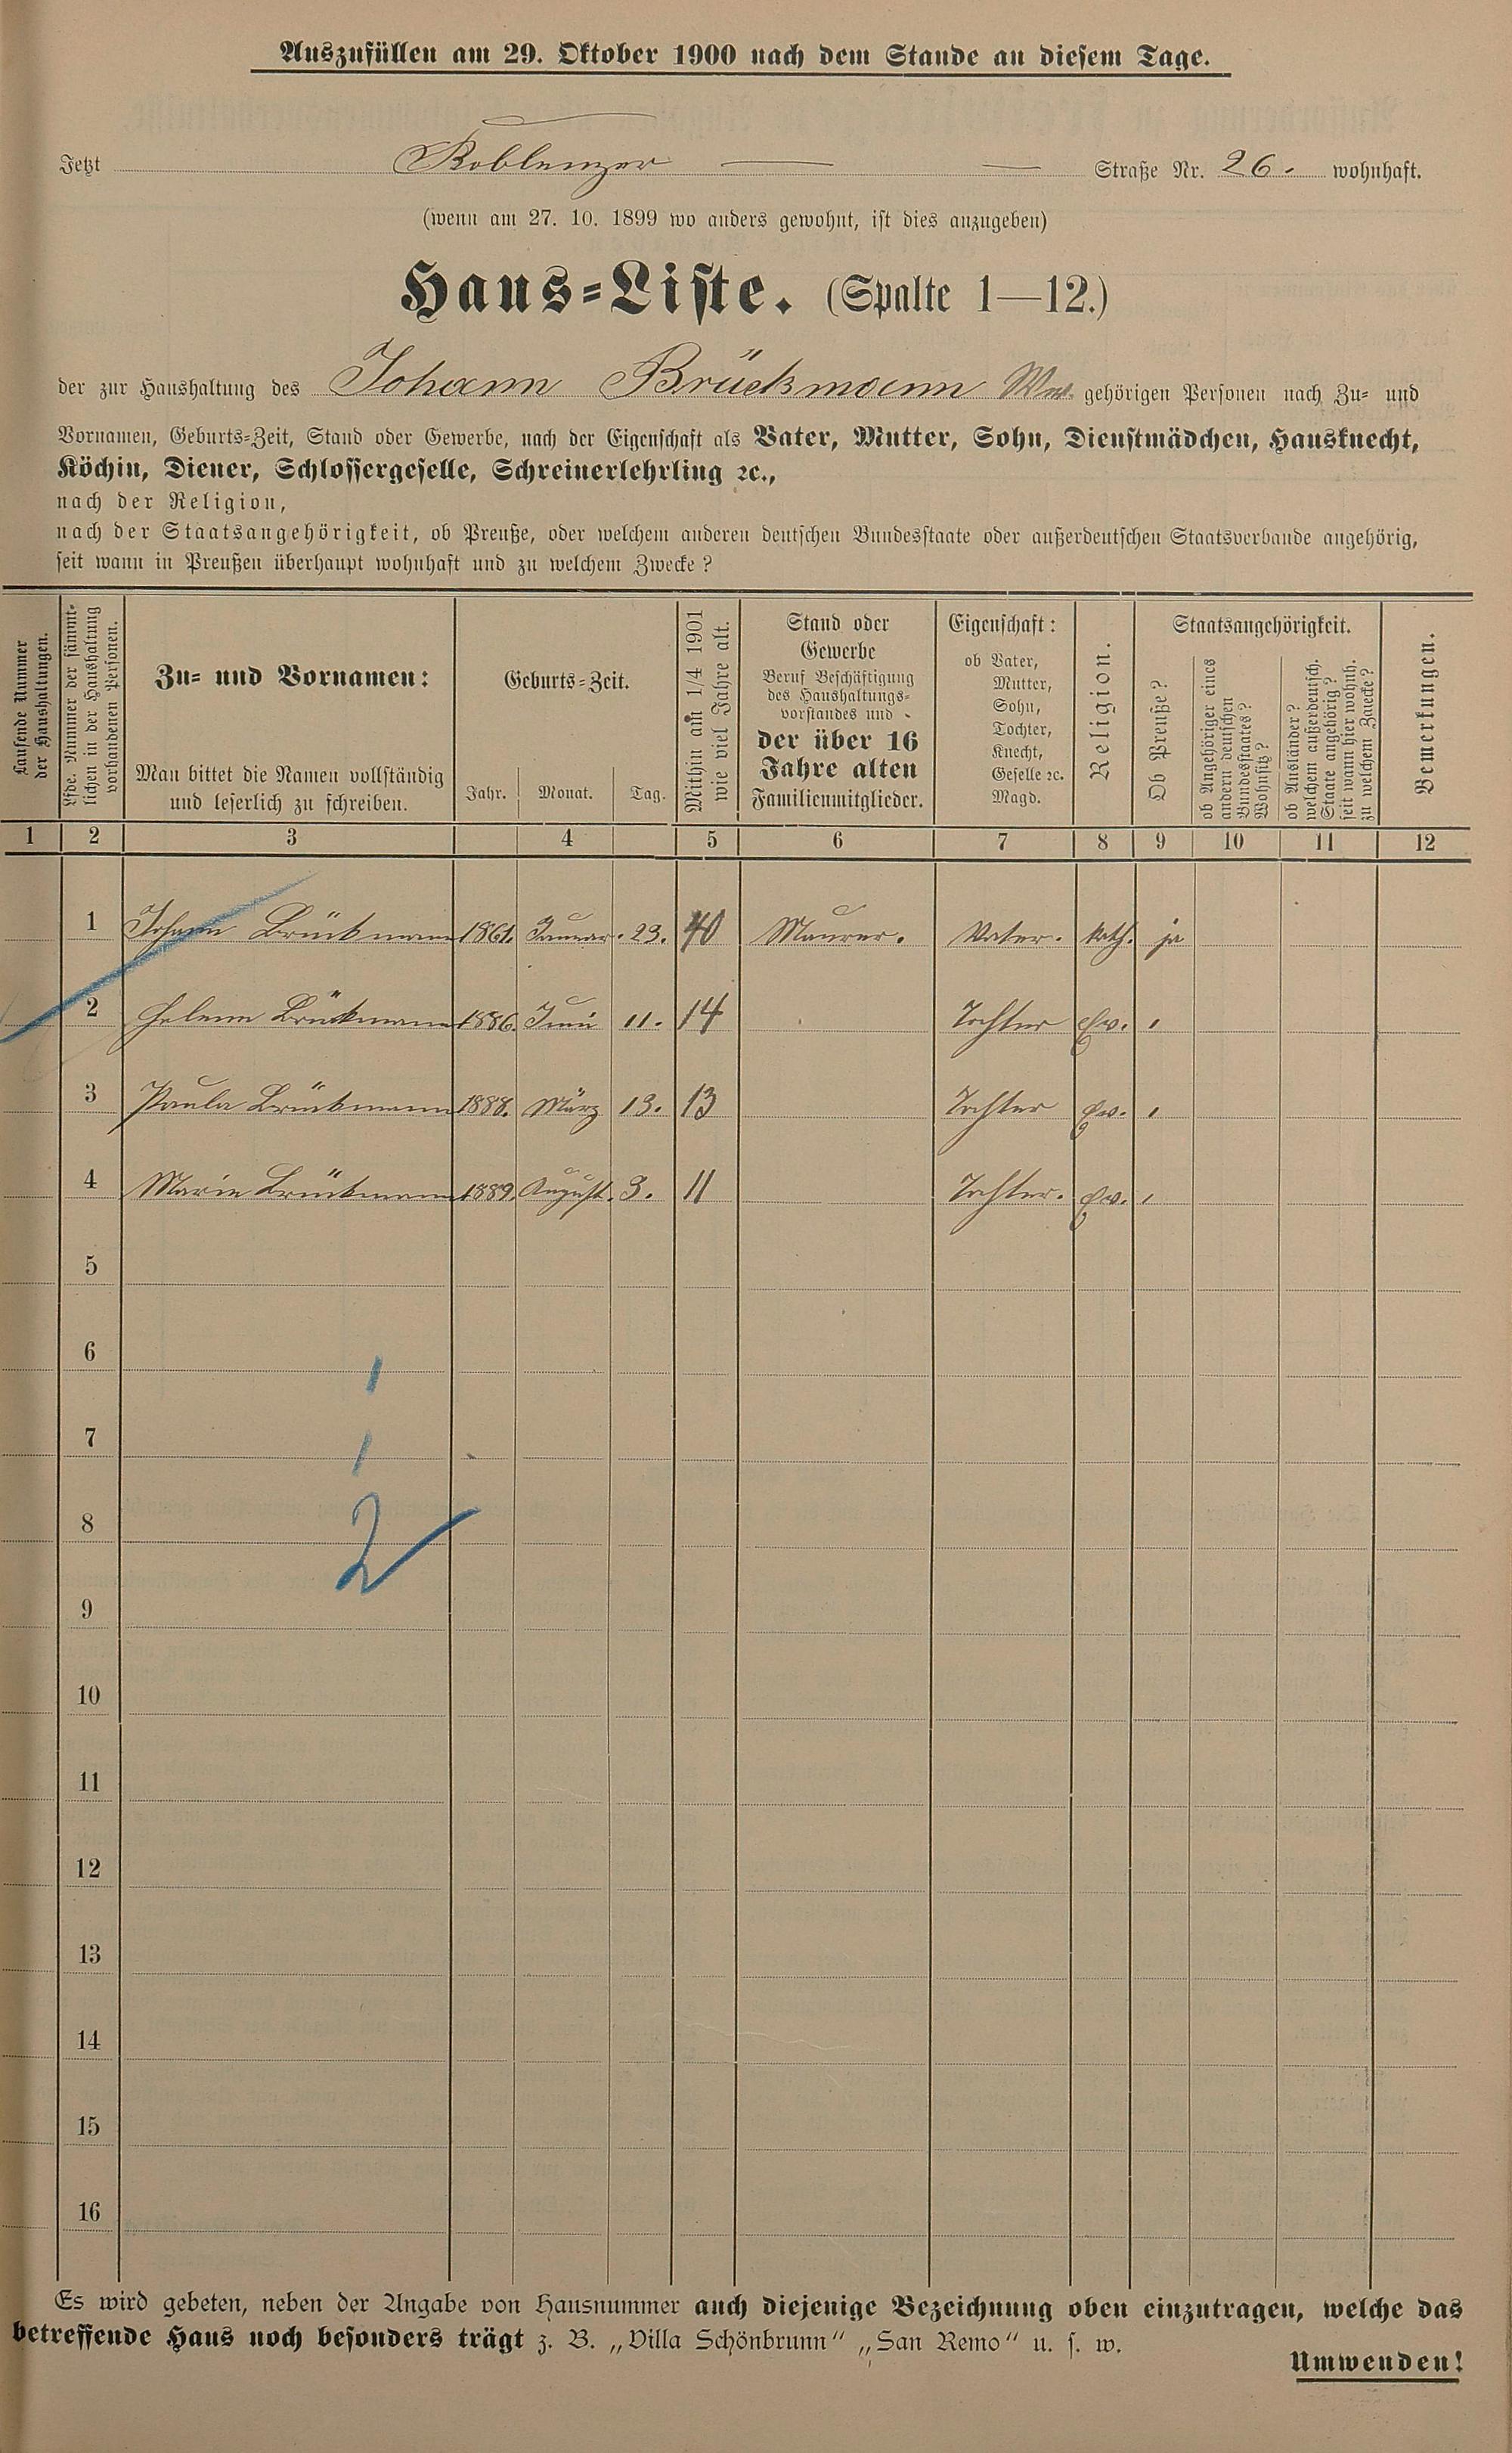 Auszufüllen am 29. Oktober 1900 nach dem Stande an diesem Tage.
Jetzt Koblenzer — — Straße Nr. 26. wohnhaft.
(wenn am 27. 10. 1899 wo anders gewohnt, ist dies anzugeben)
Haus-Liste. (Spalte 1—12.)
der zur Haushaltung des Johann Brückmann Ww. gehörigen Personen nach Zu- und
Vornamen, Geburts-Zeit, Stand oder Gewerbe, nach der Eigenschaft als Vater, Mutter, Sohn, Dienstmädchen, Hausknecht,
Köchin, Diener, Schlossergeselle, Schreinerlehrling ꝛc.,
nach der Religion,
nach der Staatsangehörigkeit, ob Preuße, oder welchem anderen deutschen Bundesstaate oder außerdeutschen Staatsverbande angehörig,
seit wann in Preußen überhaupt wohnhaft und zu welchem Zwecke?
Laufende Nummer
der Haushaltungen.
Lfde. Nummer der sämmt-
lichen in der Haushaltung
vorhandenen Personen.
Zu- und Vornamen:
Man bittet die Namen vollständig
und leserlich zu schreiben.
Geburts-Zeit.
Jahr. Monat. Tag.
Mithin am 1/4 1901
wie viel Jahre alt.
Stand oder
Gewerbe
Beruf Beschäftigung
des Haushaltungs-
vorstandes und
der über 16
Jahre alten
Familienmitglieder.
Eigenschaft:
ob Vater,
Mutter,
Sohn,
Tochter,
Knecht,
Geselle ꝛc.
Magd.
Religion.
Staatsangehörigkeit.
Ob Preuße?
ob Angehöriger eines
andern deutschen
Bundesstaates?
Wohnsitz?
ob Ausländer?
welchem außerdeutsch.
Staate angehörig?
seit wann hier wohnh.
zu welchem Zwecke?
Bemerkungen.
1 2 3 4 5 6 7 8 9 10 11 12
1 Johann Brückmann 1861. Januar. 23. 40 Maurer. Vater. kath. ja
2 Helene Brückmann 1886. Juni 11. 14 Tochter Ev. "
3 Paula Brückmann 1888. März 13. 13 Tochter Ev. "
4 Marie Brückmann 1889. August. 3. 11 Tochter. Ev. "
5
6 1
7 1
8 2
9
10
11
12
13
14
15
16
Es wird gebeten, neben der Angabe von Hausnummer auch diejenige Bezeichnung oben einzutragen, welche das
betreffende Haus noch besonders trägt z. B. „Villa Schönbrunn“ „San Remo“ u. s. w.
Umwenden!